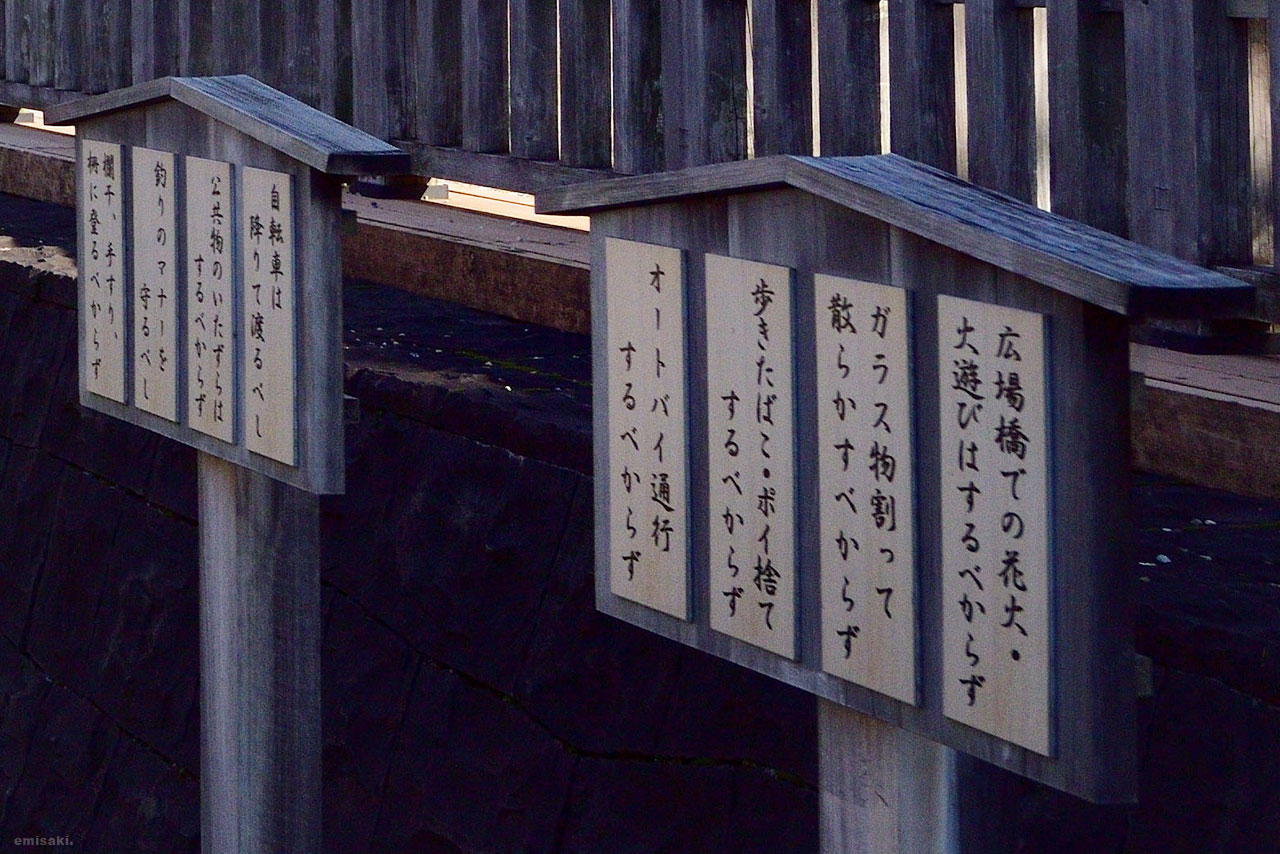 自転車は
降りて渡るべし
公共物のいたずらは
するべからず
釣りのマナーを
守るべし
欄干、手すり、
柵に登るべからず
広場橋での花火・
火遊びはするべからず
ガラス物割って
散らかすべからず
歩きたばこ・ポイ捨て
するべからず
オートバイ通行
するべからず
emisaki.